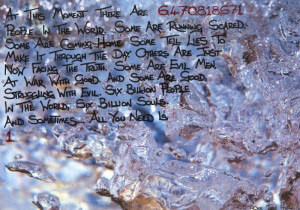 At This Moment There Are 6470818671
People In The World. Some Are Running Scared.
Some Are Coming Home. Some Tell Lies To
Make It Through The Day. Others Are Just
Now Facing The Truth. Some Are Evil Men
At War With Good. And Some Are Good.
Struggling With Evil. Six Billion People
In The World, Six Billion Souls.
And Sometimes.. All You Need Is
1.